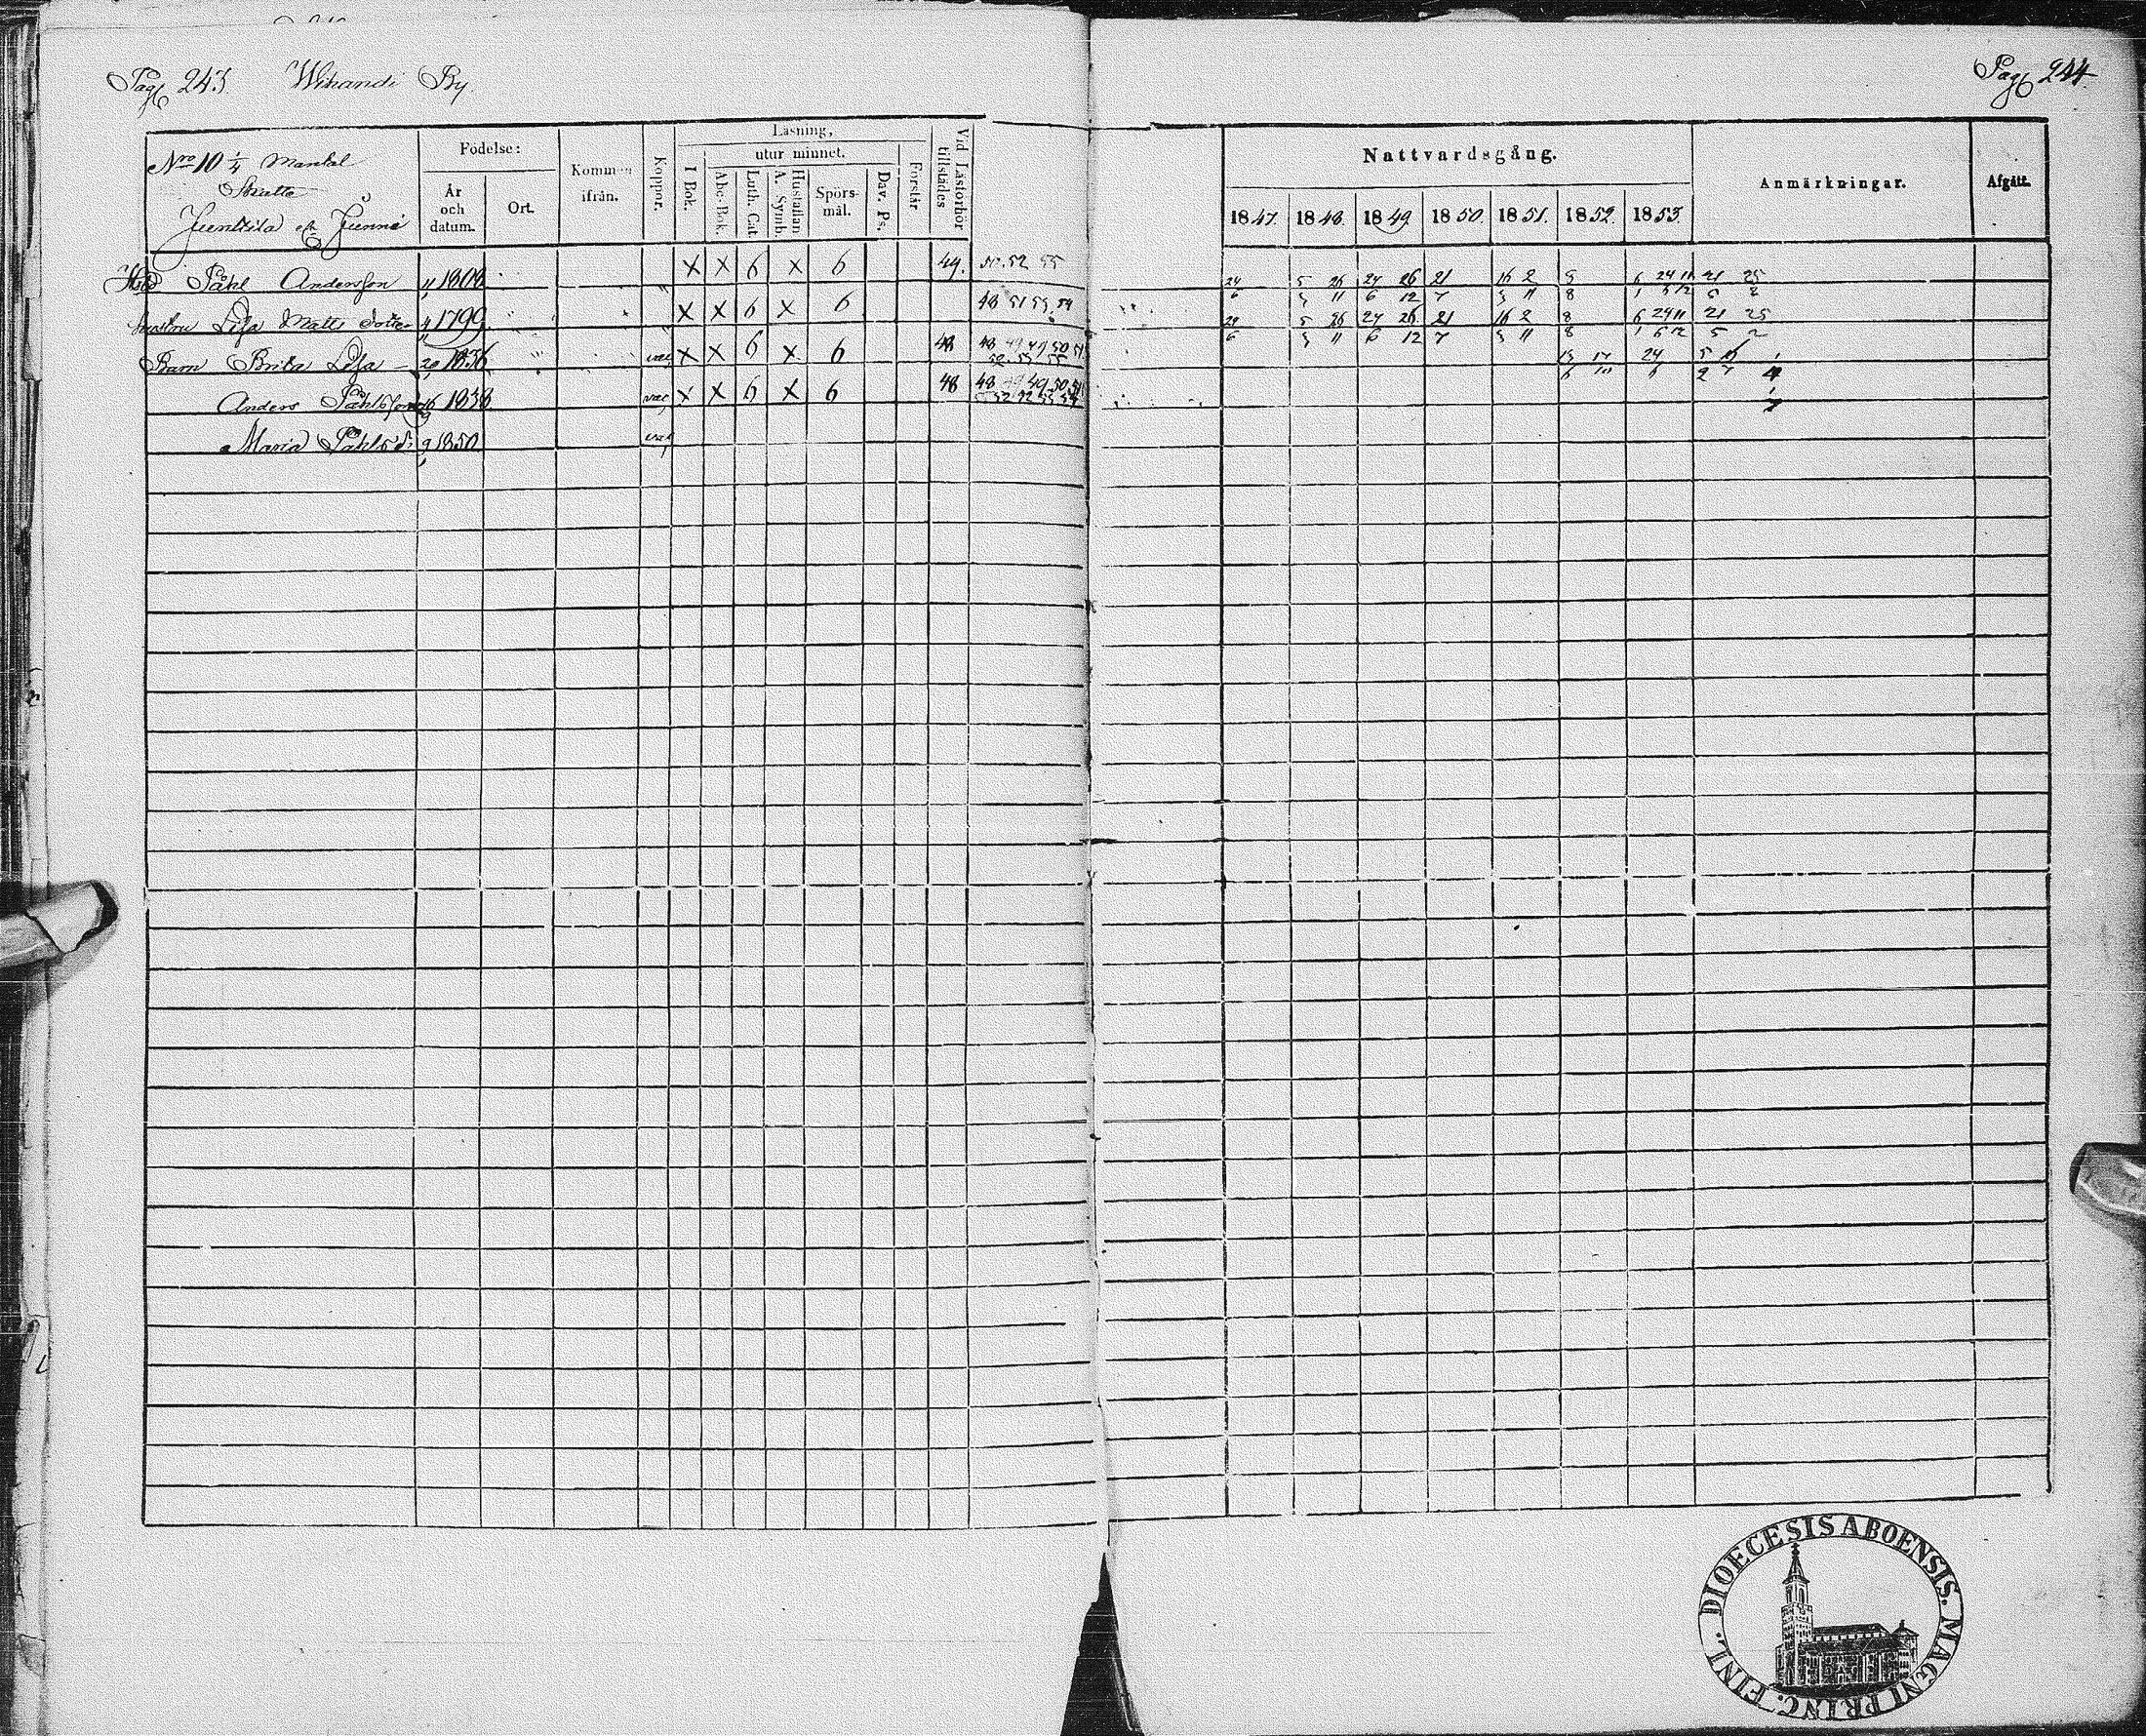 Pag 243. Wihandi By
Pag 244
Nro 10 1/4 Mantal
Skatte
Juntila
Födelse:
År och datum.
Ort.
Kommen ifrån.
Koppor.
Läsning,
I Bok.
utur minnet.
Abc-Bok.
Luth. Cat.
Hustaflan A. Symb.
Spörsmål.
Dav. Ps.
Förstår
Vid Läsförhör tillstädes
Nattvardsgång.
1847. 1848. 1849. 1850. 1851. 1852. 1853.
Anmärkningar.
Afgått.
Påhl Andersson 1808 X X 6 X 6 49. 50. 52 55
24 5 26 24 26 21 16 2 8 6 24 11 21 25
6 3 11 6 12 7 3 11 8 1 6 12 5 2
Hustru Lisa Matts dotter 1799 X X 6 X 6 48 51 53 54
5 26 24 26 21 16 2 8 6 24 11 21 25
6 3 11 6 12 7 3 11 8 1 6 12 5 2
Barn Brita Lisa 1836 vac X X 6 X 6 48 48 49 49 50 51
Anders Påhlsson 1838 vac X X 6 X 6 48 48 49 49 50 51
Maria Påhls d. 9 1850 vac
DIOECESIS ABOENSIS. MAGNI PRINC. FINL.